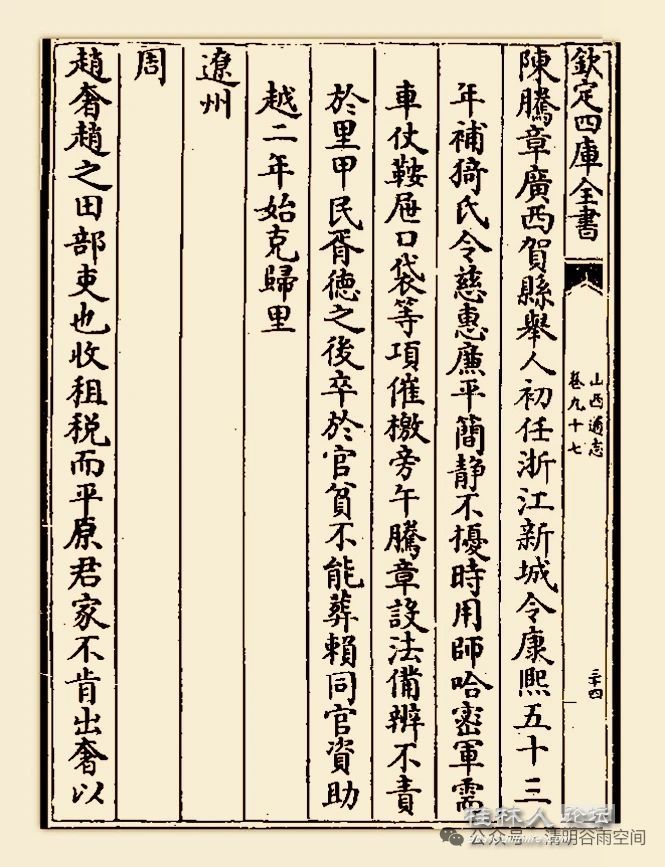 欽定四庫全書
山西通志
卷九十七
三十四
陳騰章廣西賀縣舉人初任浙江新城令康熙五十三
年補猗氏令慈惠廉平簡靜不擾時用師哈密軍需
車仗鞍屉口袋等項催檄旁午騰章設法備辨不責
於里甲民胥德之後卒於官貧不能葬賴同官資助
越二年始克歸里
遼州
周
趙奢趙之田部吏也收租税而平原君家不肯出奢以
桂林人论坛
公众号 · 清明谷雨空间